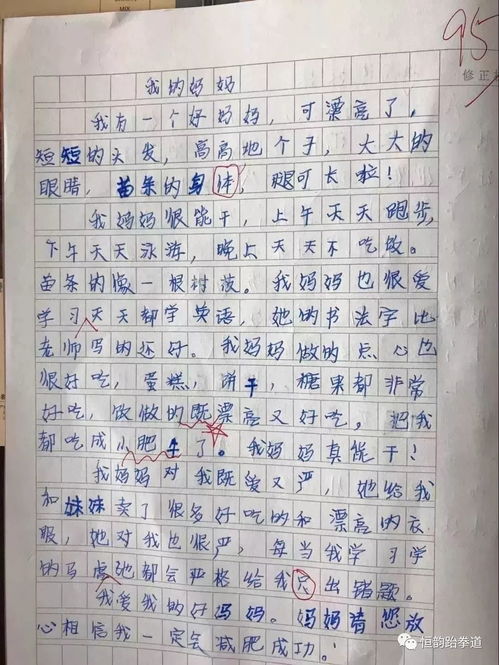 95
修正
我的妈妈
我有一个好妈妈，可漂亮了，
短短的头发，高高地个子，大大的
眼睛，苗条的身体，腿可长啦！
我妈妈很能干，上午天天跑步，
下午天天泳游，晚上天天不吃饭。
苗条的像一根树枝。我妈妈也很爱
学习天天都学英语，她的书法字比
老师写的还好。我妈妈做的点心也
很好吃，蛋糕，饼干，糖果都非常
好吃，饭做的既漂亮又好吃。把我
都吃成小肥牛了。我妈妈真能干！
我妈妈对我既爱又严，她给我
和妹妹卖了很多好吃的和漂亮的衣
服，她对我也很严，每当我学习学
的马虎她都会严格给我只出错题。
我爱我的好妈妈。妈妈请您放
心相信我一定会减肥成功！
恒韵跆拳道